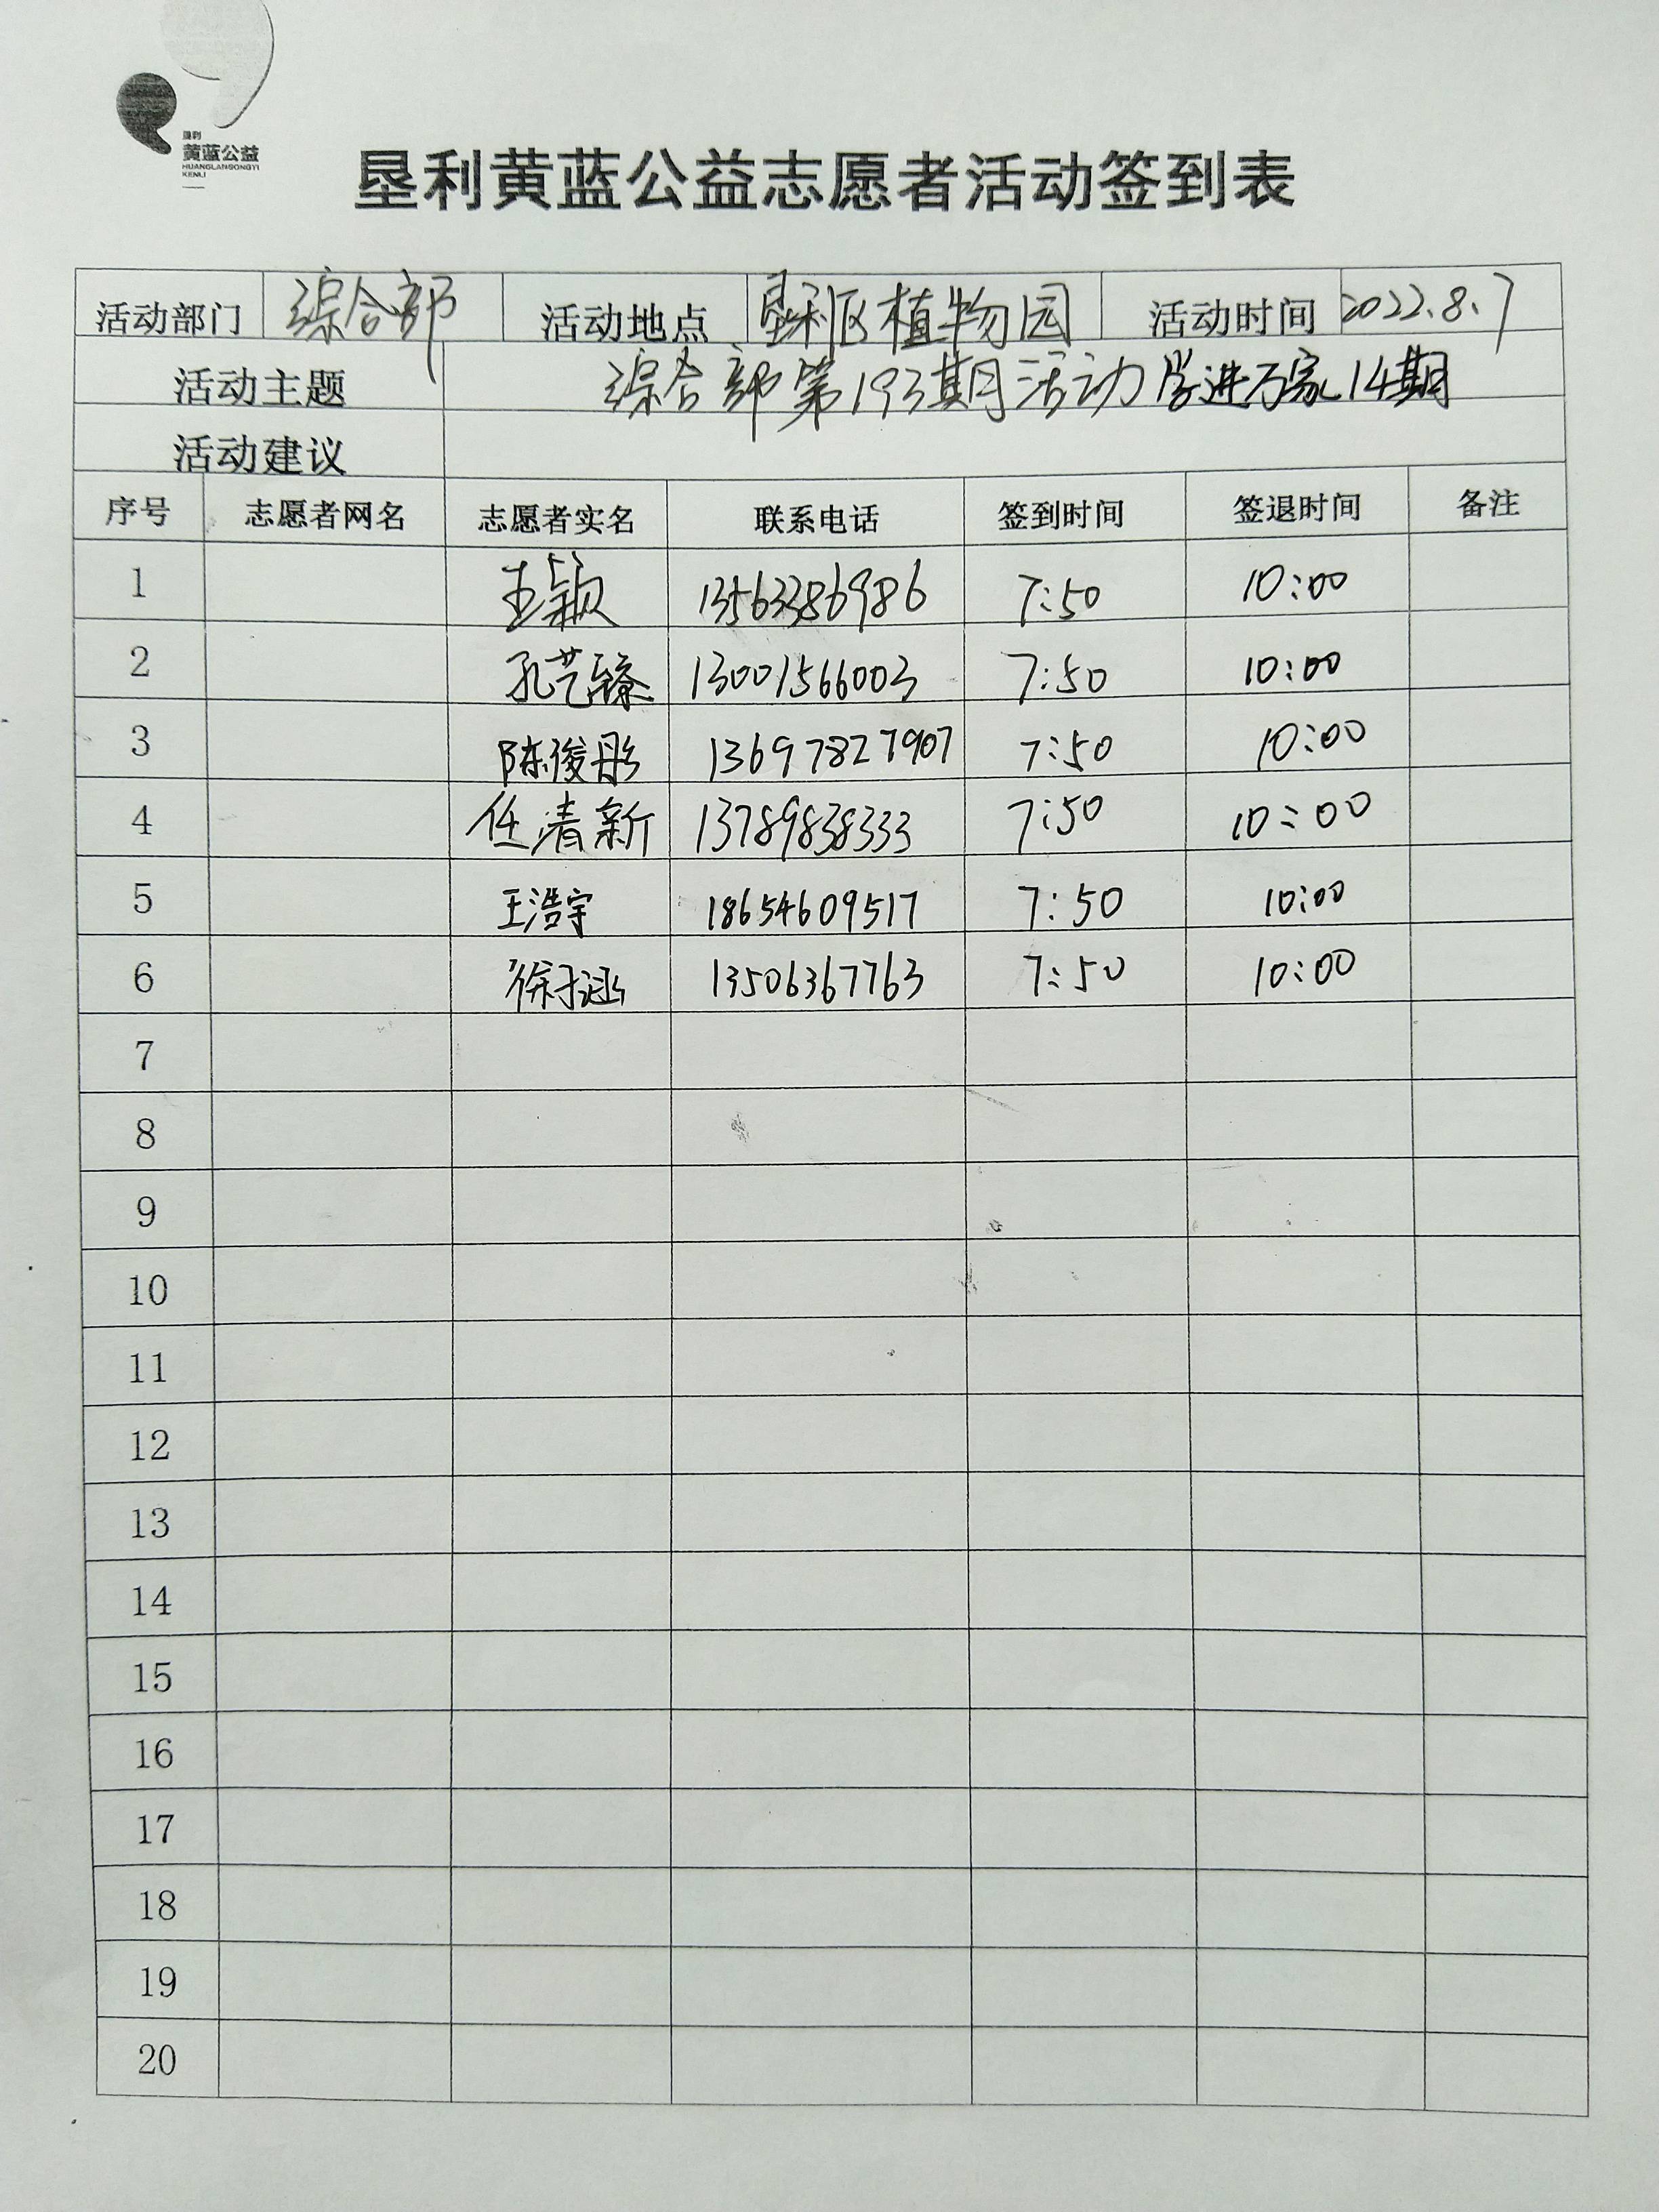 垦利
黄蓝公益
HUANGLANGONGYI
KENLI
垦利黄蓝公益志愿者活动签到表
活动部门 综合部 活动地点 垦利区植物园 活动时间 2022.8.7
活动主题 综合部第193期活动 学进万家14期
活动建议
序号 志愿者网名 志愿者实名 联系电话 签到时间 签退时间 备注
1 王颖 13563386986 7:50 10:00
2 孔艺臻 13001566003 7:50 10:00
3 陈俊彤 13697827907 7:50 10:00
4 任清新 13789838333 7:50 10:00
5 王浩宇 18654609517 7:50 10:00
6 徐子涵 13506367763 7:50 10:00
7
8
9
10
11
12
13
14
15
16
17
18
19
20